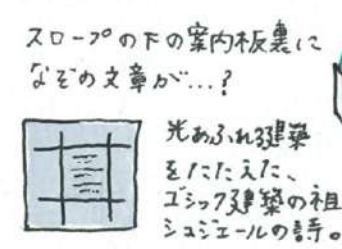 スロープの下の案内板裏に
なぞの文章が…?
光あふれる建築
をたたえた、
ゴシック建築の祖
シュジェールの詩。